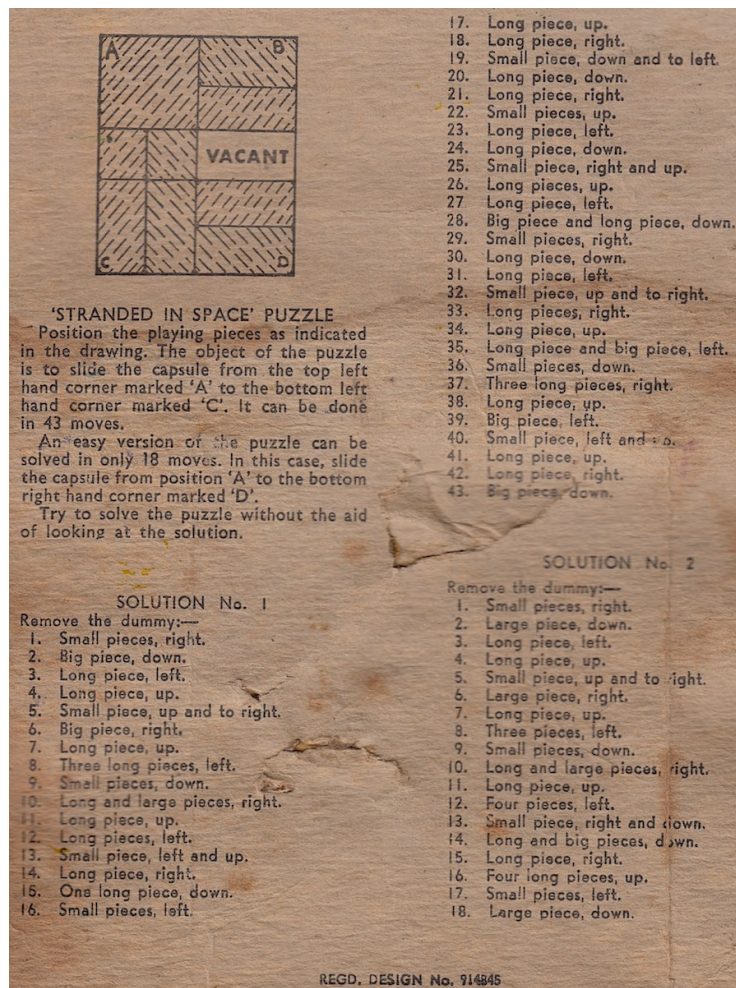 A
B
VACANT
C
D
'STRANDED IN SPACE' PUZZLE
Position the playing pieces as indicated
in the drawing. The object of the puzzle
is to slide the capsule from the top left
hand corner marked 'A' to the bottom left
hand corner marked 'C'. It can be done
in 43 moves.
An easy version of the puzzle can be
solved in only 18 moves. In this case, slide
the capsule from position 'A' to the bottom
right hand corner marked 'D'.
Try to solve the puzzle without the aid
of looking at the solution.
SOLUTION No. 1
Remove the dummy:—
1. Small pieces, right.
2. Big piece, down.
3. Long piece, left.
4. Long piece, up.
5. Small piece, up and to right.
6. Big piece, right.
7. Long piece, up.
8. Three long pieces, left.
9. Small pieces, down.
10. Long and large pieces, right.
11. Long piece, up.
12. Long pieces, left.
13. Small piece, left and up.
14. Long piece, right.
15. One long piece, down.
16. Small pieces, left.
17. Long piece, up.
18. Long piece, right.
19. Small piece, down and to left.
20. Long piece, down.
21. Long piece, right.
22. Small pieces, up.
23. Long piece, left.
24. Long piece, down.
25. Small piece, right and up.
26. Long pieces, up.
27 Long piece, left.
28. Big piece and long piece, down.
29. Small pieces, right.
30. Long piece, down.
31. Long piece, left.
32. Small piece, up and to right.
33. Long pieces, right.
34. Long piece, up.
35. Long piece and big piece, left.
36. Small pieces, down.
37. Three long pieces, right.
38. Long piece, up.
39. Big piece, left.
40. Small piece, left and
41. Long piece, up.
42. Long piece, right.
43. Big piece, down.
SOLUTION No. 2
Remove the dummy:—
1. Small pieces, right.
2. Large piece, down.
3. Long piece, left.
4. Long piece, up.
5. Small piece, up and to right.
6. Large piece, right.
7. Long piece, up.
8. Three pieces, left.
9. Small pieces, down.
10. Long and large pieces, right.
11. Long piece, up.
12. Four pieces, left.
13. Small piece, right and down.
14. Long and big pieces, down.
15. Long piece, right.
16. Four long pieces, up.
17. Small pieces, left.
18. Large piece, down.
REGD. DESIGN No. 914845